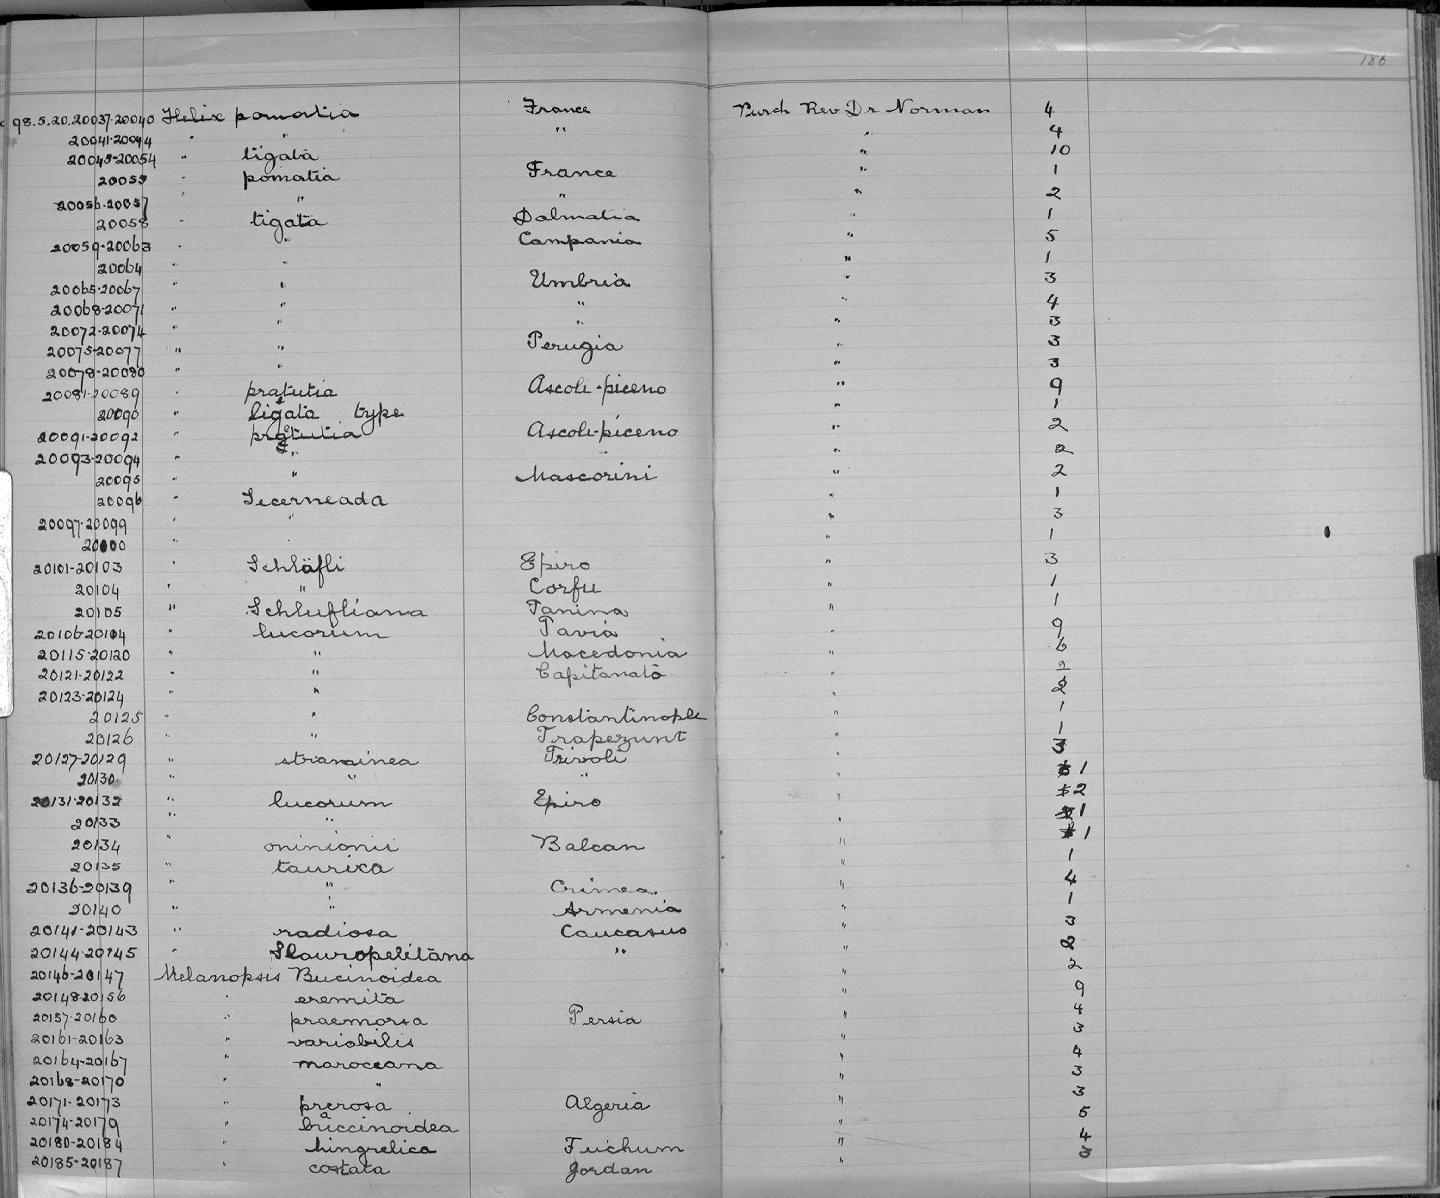 186
98.5.20.20037-20040 Helix pomatia France Purch Rev Dr Norman 4
20041-20044 " " " " 4
20045-20054 " ligata " 10
20055 " pomatia France " 1
20056-20057 " " " " 2
20058 " ligata Dalmatia " 1
20059-20063 " " Campania " 5
20064 " " " 1
20065-20067 " " Umbria " 3
20068-20071 " " " " 4
20072-20074 " " " " 3
20075-20077 " " Perugia " 3
20078-20080 " " " 3
20081-20089 " pratutia Ascoli-piceno " 9
20090 " ligata type " 1
20091-20092 " pratutia Ascoli-piceno " 2
20093-20094 " " " " 2
20095 " " Mascorini " 2
20096 " Secerneada " 1
20097-20099 " " " 3
20100 " " " 1
20101-20103 " Schläfli Epiro " 3
20104 " " Corfu " 1
20105 " Schlufliana Janina " 1
20106-20114 " lucorum Pavia " 9
20115-20120 " " Macedonia " 6
20121-20122 " " Capitanato " 2
20123-20124 " " " 2
20125 " " Constantinople " 1
20126 " " Trapezunt " 1
20127-20129 " straminea Trivoli " 3
20130 " " " " 1
20131-20132 " lucorum Epiro " 2
20133 " " " 1
20134 " oninionii Balcan " 1
20135 " taurica " 1
20136-20139 " " Crimea. " 4
20140 " " Armenia " 1
20141-20143 " radiosa Caucasus " 3
20144-20145 " Stauropelitana " " 2
20146-20147 Melanopsis Bucinoidea " 2
20148-20156 " eremita " 9
20157-20160 " praemorsa Persia " 4
20161-20163 " variabilis " 3
20164-20167 " maroccana " 4
20168-20170 " " " 3
20171-20173 " prerosa Algeria " 3
20174-20179 " buccinoidea " 5
20180-20184 " hingrelica Fuchum " 4
20185-20187 " costata Jordan " 3